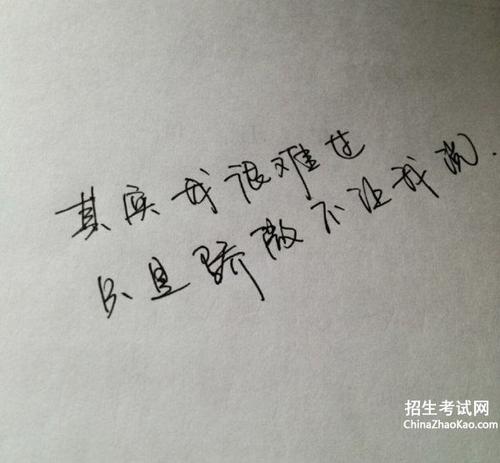 其实我很难过
只是骄傲不让我说.
招生考试网
ChinaZhaoKao.com